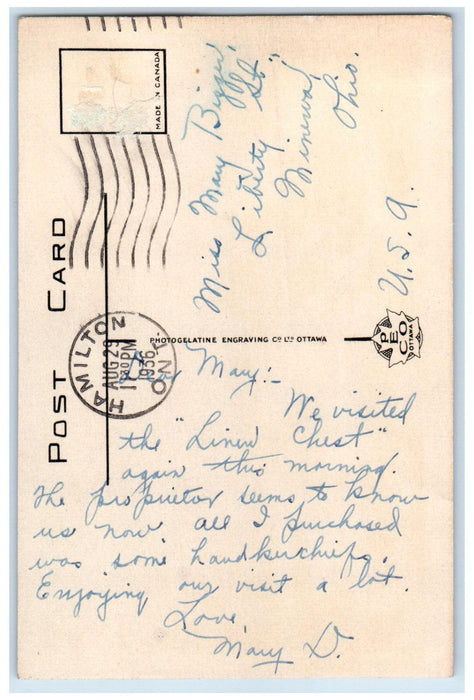 MADE IN CANADA
POST CARD
HAMILTON
ONT.
AUG 29
1 30 PM
1936
PHOTOGELATINE ENGRAVING Co. LTD. OTTAWA
PECO
OTTAWA
Miss Mary Bigger,
Liberty St.
Minerva,
Ohio.
U.S.A.
Dear Mary:-
We visited
the "Linen Chest"
again this morning.
The proprietor seems to know
us now all I purchased
was some handkerchiefs.
Enjoying our visit a lot.
Love,
Mary D.